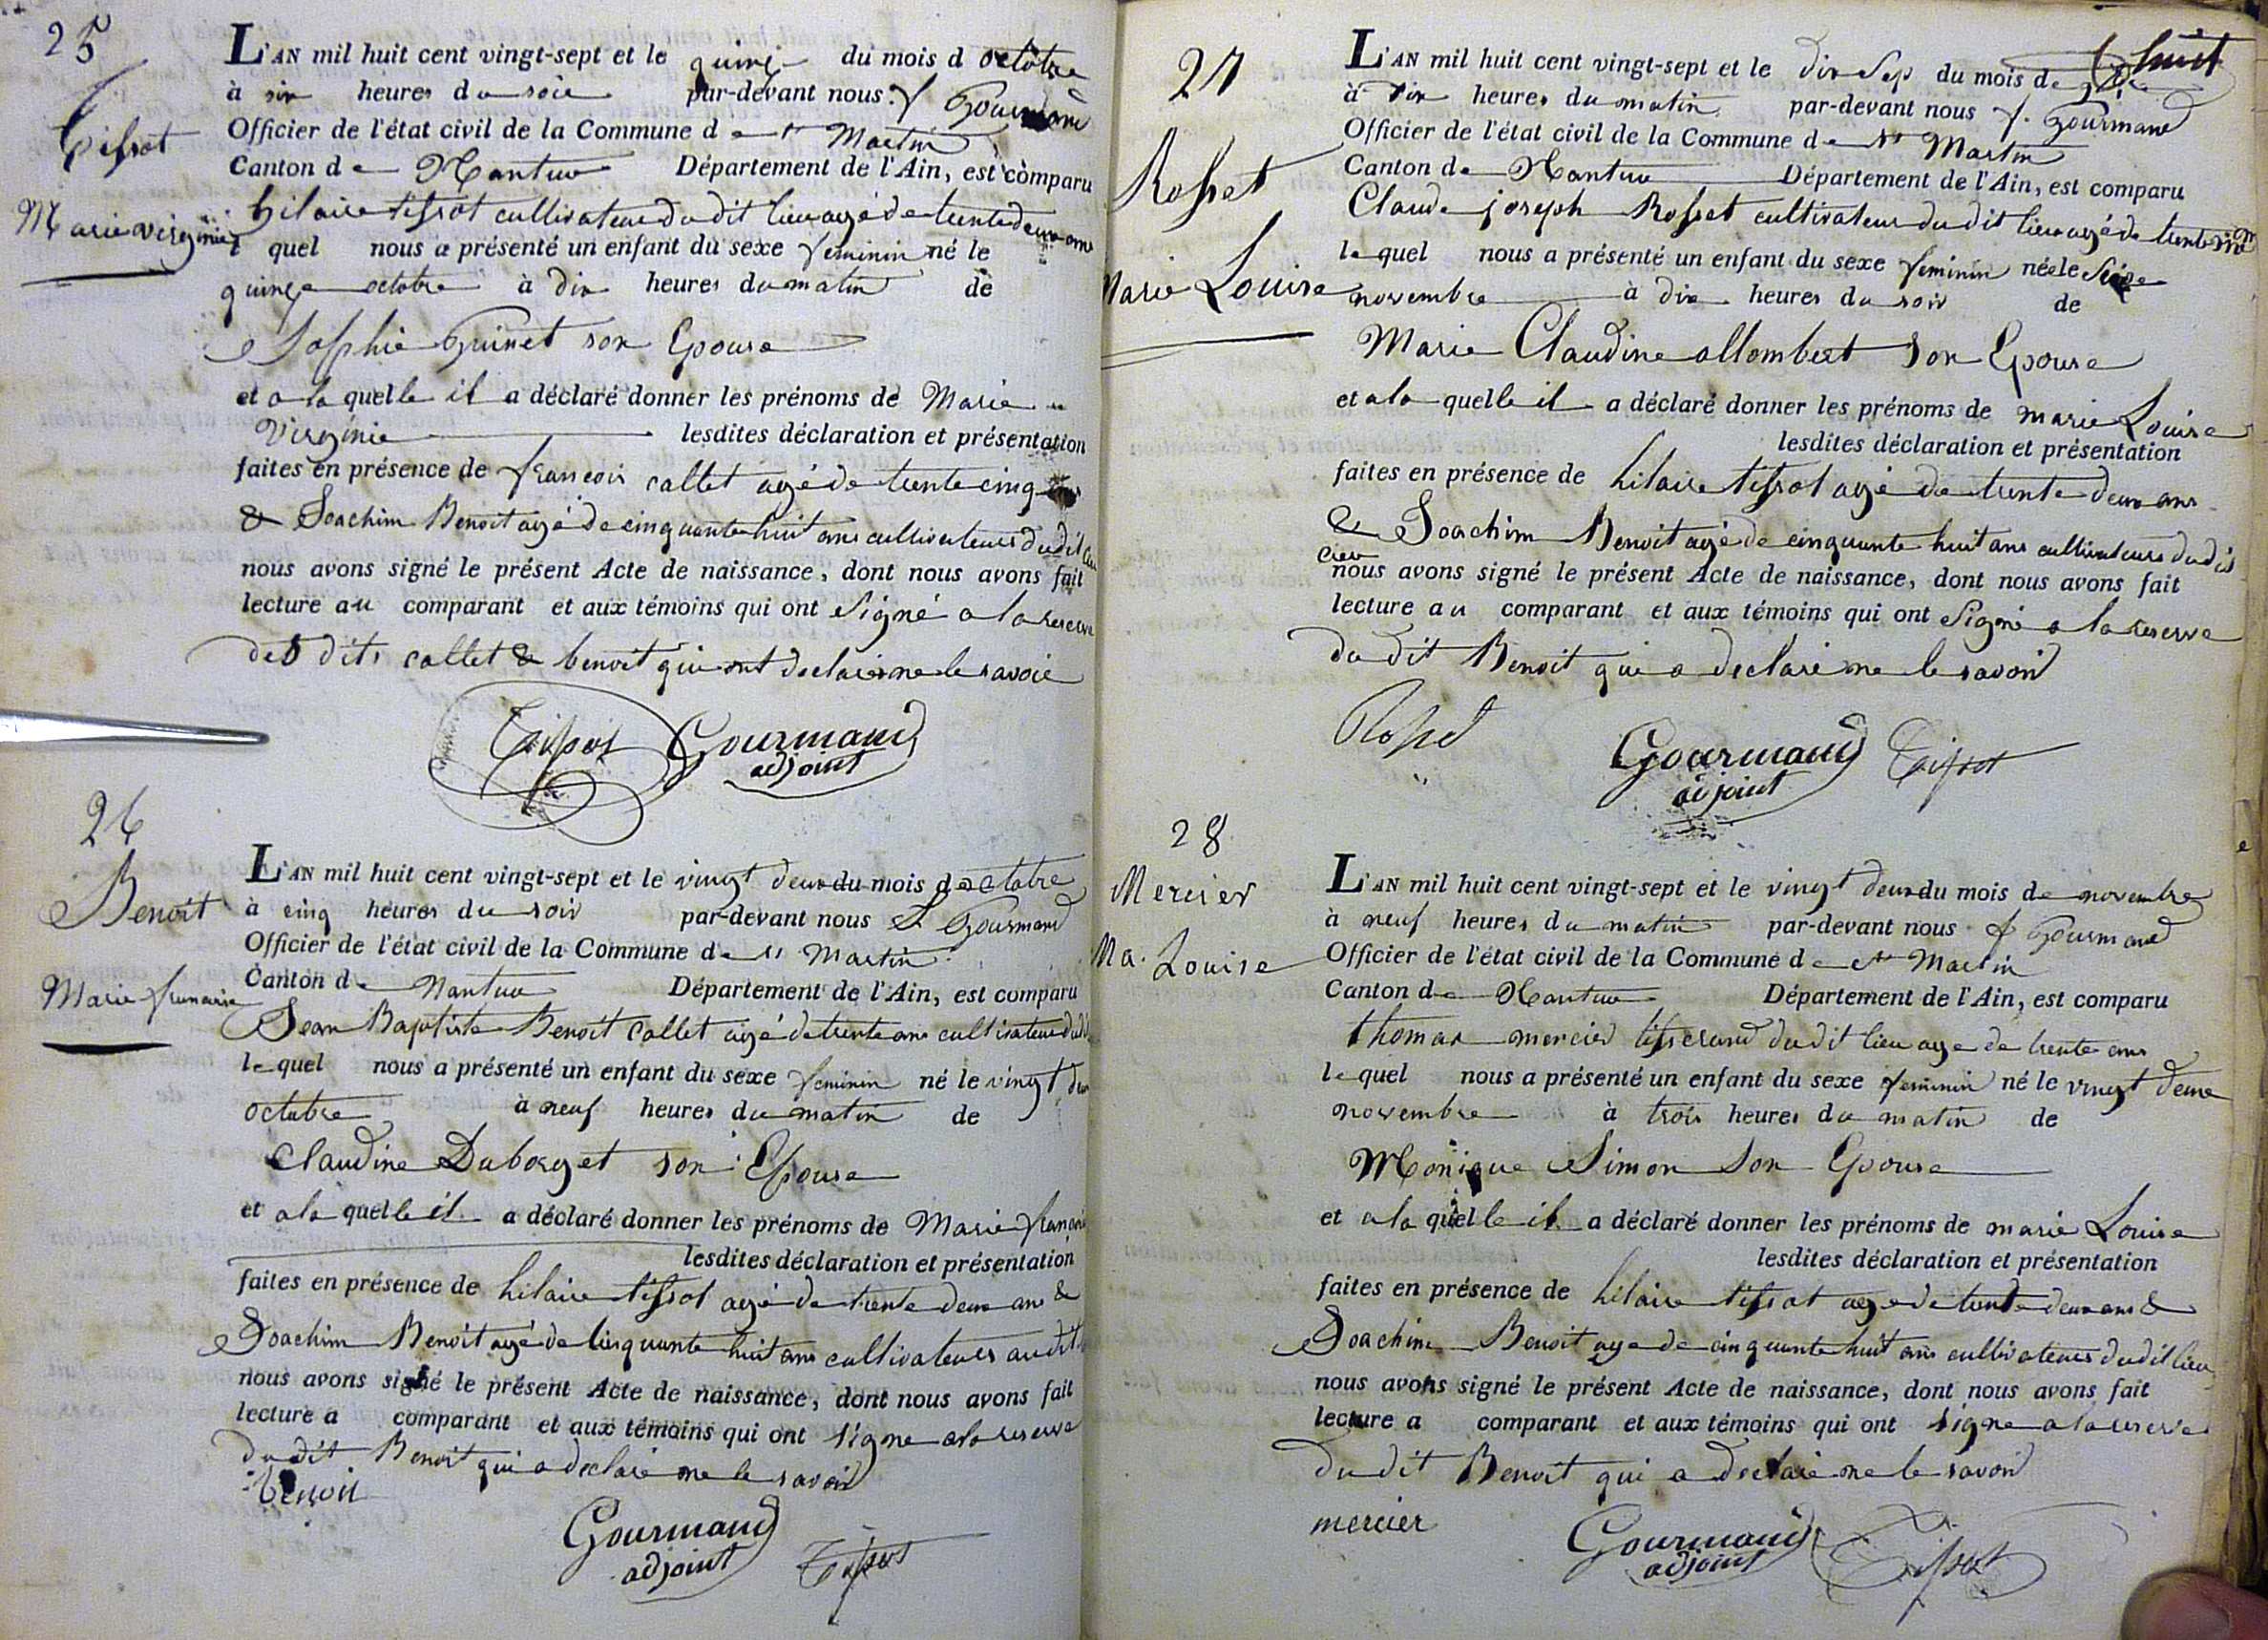 25
Tissot
Marie virginie
L'AN mil huit cent vingt-sept et le quinze du mois d octobre
à six heures du soir par-devant nous f Gourmand
Officier de l'état civil de la Commune de st Martin
Canton de Nantua Département de l'Ain, est comparu
hilaire tissot cultivateur du dit lieu agé de trente deux ans
quel nous a présenté un enfant du sexe feminin né le
quinze octobre à dix heures du matin de
Sophie Guinet son Epouse
et a la quelle il a déclaré donner les prénoms de Marie
Virginie lesdites déclaration et présentation
faites en présence de francois callet agé de trente cinq ans
& Joachim Benoit agé de cinquante huit ans cultivateurs du dit lieu
nous avons signé le présent Acte de naissance, dont nous avons fait
lecture au comparant et aux témoins qui ont signé a la reserve
des dits callet & benoit qui ont declaré ne le savoir
Tissot Gourmand
adjoint
26
Benoit
Marie francoise
L'AN mil huit cent vingt-sept et le vingt deux du mois d octobre
à cinq heures du soir par-devant nous f Gourmand
Officier de l'état civil de la Commune de st Martin
Canton de Nantua Département de l'Ain, est comparu
Jean Baptiste Benoit callet agé de trente ans cultivateur du dit
le quel nous a présenté un enfant du sexe feminin né le vingt deux
octobre à neuf heures du matin de
Claudine Duborget son Epouse
et a la quelle il a déclaré donner les prénoms de Marie
lesdites déclaration et présentation
faites en présence de hilaire tissot agé de trente deux ans &
Joachim Benoit agé de cinquante huit ans cultivateurs au dit
nous avons signé le présent Acte de naissance, dont nous avons fait
lecture a comparant et aux témoins qui ont signe a la reserve
du dit Benoit qui a declaré ne le savoir
benoit
Gourmand
adjoint Tissot
27
Rosset
Marie Louise
huit
L'AN mil huit cent vingt-sept et le dix sep du mois de 9bre
à dix heures du matin par-devant nous f. Gourmand
Officier de l'état civil de la Commune de st Martin
Canton de Nantua Département de l'Ain, est comparu
Claude joseph Rosset cultivateur du dit lieu agé de trente
le quel nous a présenté un enfant du sexe feminin née le seize
novembre à dix heures du soir de
Marie Claudine allombert son Epouse
et a la quelle il a déclaré donner les prénoms de marie Louise
lesdites déclaration et présentation
faites en présence de hilaire tissot agé de trente deux ans
& Joachim Benoit agé de cinquante huit ans cultivateurs du dit
lieu
nous avons signé le présent Acte de naissance, dont nous avons fait
lecture au comparant et aux témoins qui ont signé a la reserve
du dit Benoit qui a declaré ne le savoir
Rosset
Gourmand Tissot
adjoint
28
Mercier
Ma. Louise
L'AN mil huit cent vingt-sept et le vingt deux du mois de novembre
à neuf heures du matin par-devant nous f Gourmand
Officier de l'état civil de la Commune de st Martin
Canton de Nantua Département de l'Ain, est comparu
thomas mercier tisserand du dit lieu age de trente ans
le quel nous a présenté un enfant du sexe feminin né le vingt deux
novembre à trois heures du matin de
Monique Simon son Epouse
et a la quelle il a déclaré donner les prénoms de marie Louise
lesdites déclaration et présentation
faites en présence de hilaire tissot age de trente deux ans &
Joachim Benoit age de cinquante huit ans cultivateurs du dit lieu
nous avons signé le présent Acte de naissance, dont nous avons fait
lecture a comparant et aux témoins qui ont signe a la reserve
du dit Benoit qui a declaré ne le savoir
mercier
Gourmand Tissot
adjoint